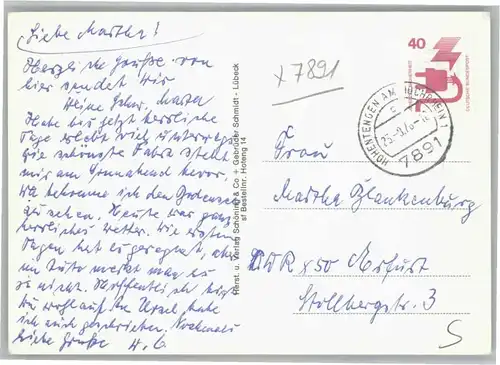 Liebe Martha!
Herzliche Grüße von
hier sendet Dir
Deine Schw. Marta
Habe bis jetzt herrliche
Tage erlebt viel unterwegs
die schönste Fahrt steht
mir am Sonnabend bevor,
da bekomme ich den Bodensee
zu sehen. Heute war ganz
herrliches Wetter. Die ersten
Tagen hat es geregnet, aber
im Auto merkt man es
ja nicht. Hoffentlich bist
Du wohlauf. An Ursel habe
ich auch geschrieben. Nochmals
liebe Grüße
Herst. u. Verlag Schöning & Co + Gebrüder Schmidt · Lübeck
Bestellnr. Hoteng 14
x 7891
40
DEUTSCHE BUNDESPOST
HOHENTENGEN AM HOCHRHEIN 1
7891
Frau
Martha Blankenburg
DDR x50 Erfurt
Stollbergstr. 3